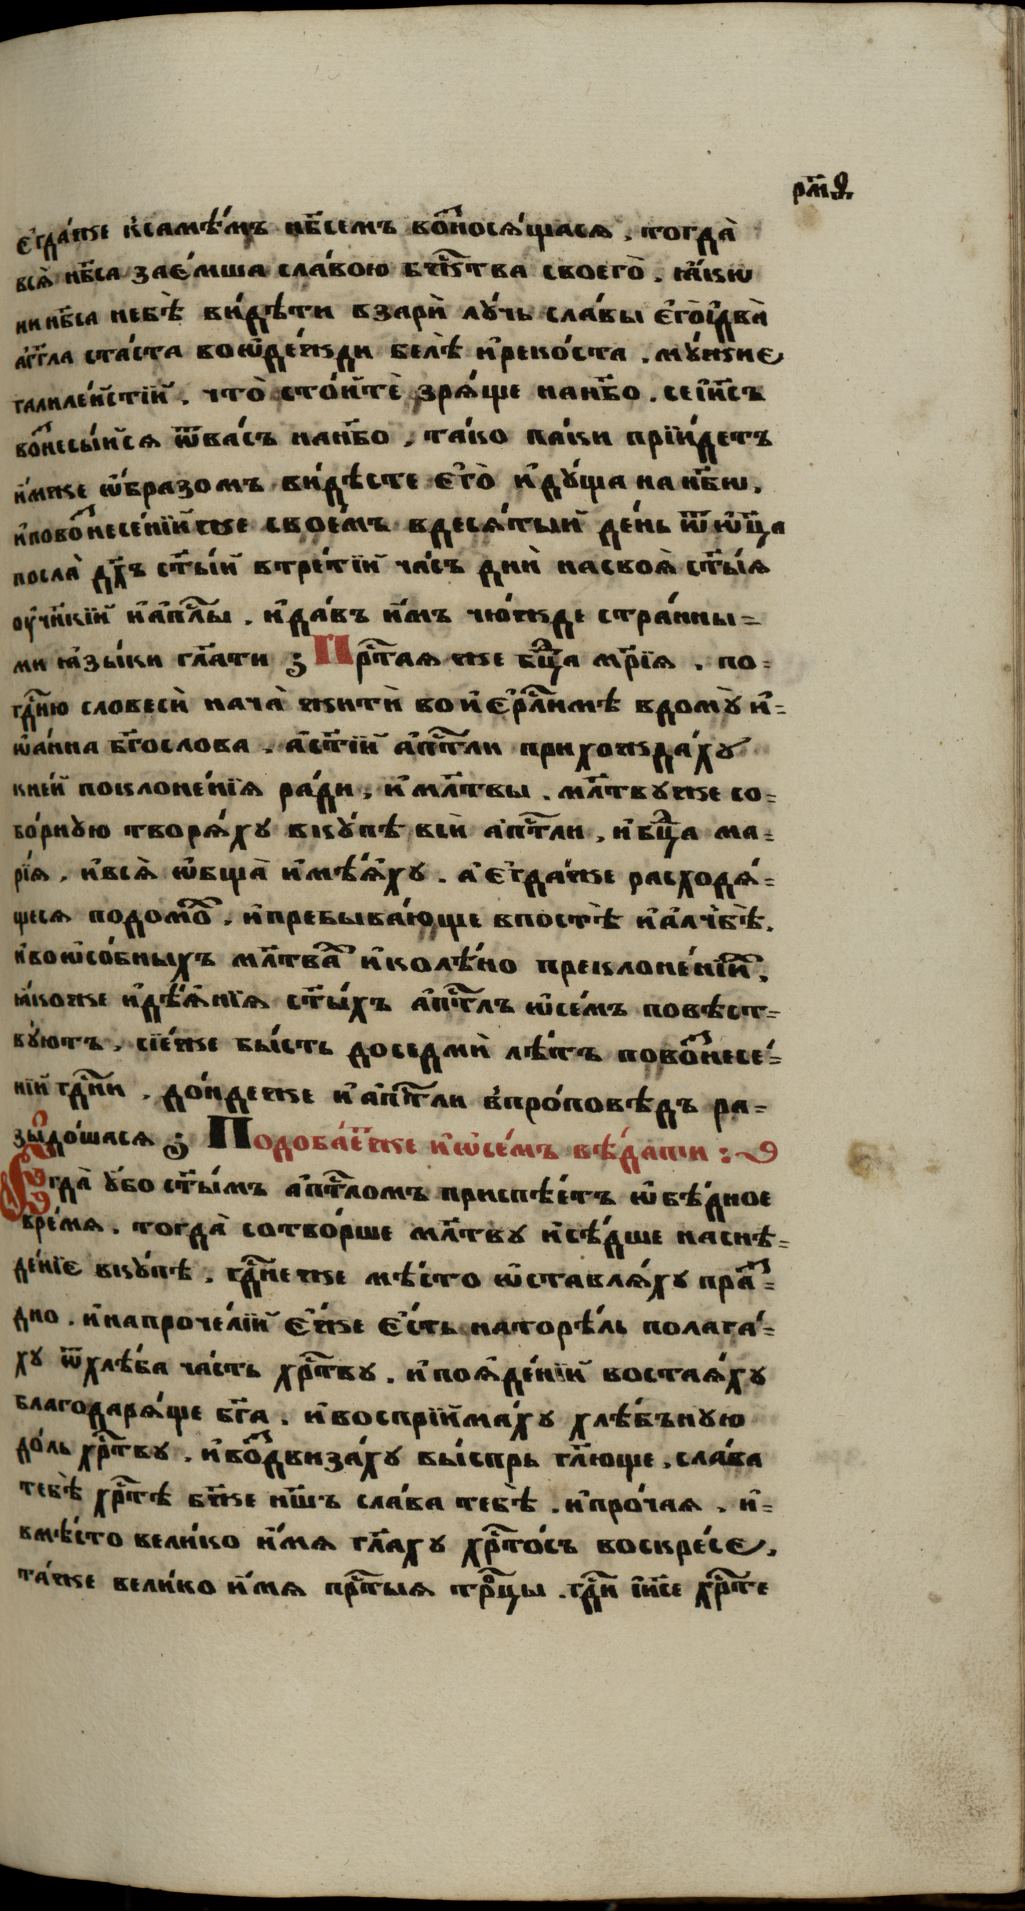 рм҃ѳ.
є҆гда́же ксамѣ́мъ нб҃семъ воⷥ҇нося́щася, тогда̀
вся̀ нб҃са зае́мша сла́вою бж҃ства своего̀. ꙗ҆́кѡ
ни нб҃са небѣ̀ ви́дѣти взарѝ лу́чь сла́вы є҆го̀ и҆два̀
а҆́гг҃ла ста́ста воѡ҆де́жди белѣ̀ и҆реко́ста. му́жиє
галиле́йстїи. что̀ стои́те зря́ще нанб҃о. сеі҆и҃съ
воⷥ҇несы́йся ѿва́съ нанб҃о, та́ко па́ки прїи́детъ
и҆́мже ѡ҆́бразомъ ви́дѣсте є҆го̀ и҆ду́ща на нб҃ѡ.
и҆повоⷥ҇несе́нїи же свое́мъ вдеся́тый де́нь ѿѻц҃а
посла̀ дх҃ъ ст҃ы́й втре́тїй ча́съ днѝ насвоя̀ ст҃ы́я
оу҆чн҃ки и҆а҆пⷭ҇лы. и҆да́въ и҆̀мъ чю́жде стра́нны=
ми ꙗ҆зы́ки гл҃ати ; Прⷭ҇тая же бц҃а мр҃їя. по=
гдⷭ҇ню словесѝ нача̀ жи́ти воі҆єрⷭ҇ли́мѣ вдому̀ и҆=
ѡ҆а́нна бг҃осло́ва. а҆ст҃і́и а҆пⷭ҇тли прихожда́ху
кне́й поклоне́нїя ра́ди, и҆ мл҃твы. мл҃твуже со=
бо́рную творя́ху вку́пѣ всѝ а҆пⷭ҇тли, и҆бц҃а ма=
рі́я. и҆вся̀ ѡ҆́бща и҆мѣ́яху. а҆ є҆гда́же расходя́=
щеся подомо́ⷨ, и҆пребыва́юще впостѣ̀ и҆а҆́лчбѣ.
и҆воѡ҆со́бныхъ мл҃тваⷯ и҆колѣ́но преклоне́нїи,
ꙗ҆́коже и҆дѣѧ́нїя ст҃ы́хъ а҆пⷭ҇тлъ ѡ҆се́мъ повѣст=
ву́ютъ. сїе́же бы́сть доседмѝ лѣ́тъ повоⷥ҇несе́=
нїи гдⷭ҇ни, до́ндеже и҆а҆пⷭ҇тли впро́повѣдъ ра=
зыдо́шася ; Подоба́етже и҆ѡ҆се́мъ вѣ́дати :
Є҆гда̀ у҆́бо ст҃ы́мъ а҆пⷭ҇тломъ приспѣ́етъ ѡ҆бѣ́дное
вре́мя. тогда̀ сотво́рше мл҃тву и҆сѣ́дше наснѣ=
де́нїє вку́пѣ, гдⷭ҇неже мѣ́сто ѡ҆ставля́ху пра́ⷥ=
дно. и҆напроче́лїи є҆́же є҆́сть наторѣ́ль полага́=
ху ѿхлѣ́ба ча́сть хрⷭ҇тву. и҆поꙗ҆де́нїи воста́яху
благодаря́ще бг҃а. и҆воспрїима́ху хлѣ́бъную
до́ль хрⷭ҇тву. и҆воⷥ҇двиза́ху вы́спрь гл҃юще, сла́ва
тебѣ̀ хрⷭ҇тѣ̀ бж҃е нш҃ъ сла́ва тебѣ̀. и҆про́чая. и҆=
вмѣ́сто вели́ко и҆́мя гл҃аху хрⷭ҇то́съ воскре́се,
та́же вели́ко и҆́мя прⷭ҇тыя трⷪ҇цы. гдⷭ҇и і҆и҃се хрⷭ҇те